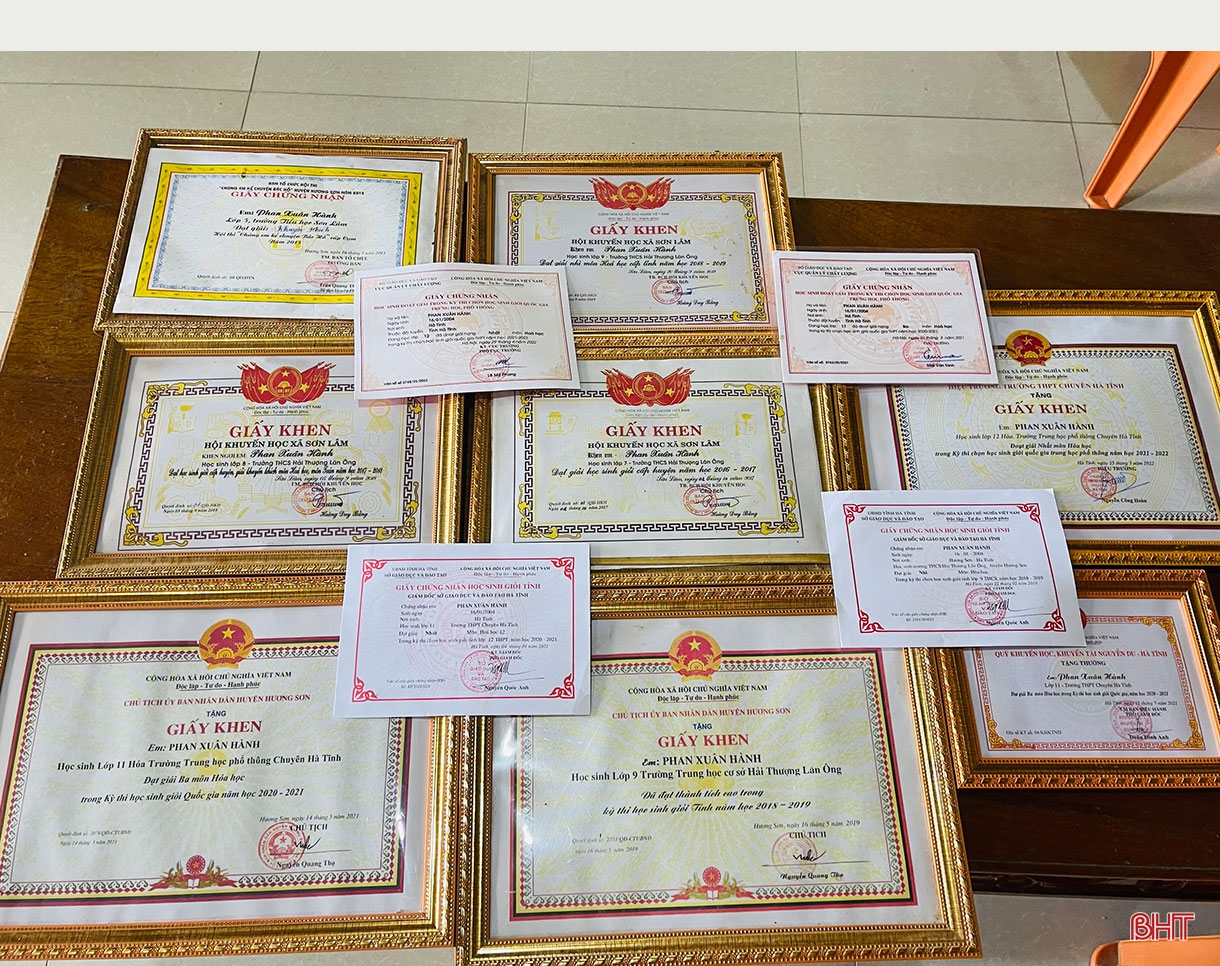 BAN TỔ CHỨC HỘI THI
"CHÚNG EM KỂ CHUYỆN BÁC HỒ" HUYỆN HƯƠNG SƠN NĂM 2015
GIẤY CHỨNG NHẬN
Em: Phan Xuân Hành
Lớp 5, trường Tiểu học Sơn Lâm
Đạt giải: Khuyến khích
Hội thi "Chúng em kể chuyện Bác Hồ" cấp Cụm
Năm 2015
TM. BAN TỔ CHỨC
TRƯỞNG BAN
CỘNG HÒA XÃ HỘI CHỦ NGHĨA VIỆT NAM
Độc lập - Tự do - Hạnh phúc
GIẤY KHEN
HỘI KHUYẾN HỌC XÃ SƠN LÂM
Khen em: Phan Xuân Hành
Học sinh lớp 9 - Trường THCS Hải Thượng Lãn Ông
Đạt giải nhì môn Hoá học cấp tỉnh năm học 2018 - 2019
TM. BCH HỘI KHUYẾN HỌC
Chủ tịch
Hoàng Duy Bằng
BỘ GIÁO DỤC VÀ ĐÀO TẠO
CỤC QUẢN LÝ CHẤT LƯỢNG
CỘNG HÒA XÃ HỘI CHỦ NGHĨA VIỆT NAM
Độc lập - Tự do - Hạnh phúc
GIẤY CHỨNG NHẬN
HỌC SINH ĐOẠT GIẢI TRONG KỲ THI CHỌN HỌC SINH GIỎI QUỐC GIA
TRUNG HỌC PHỔ THÔNG
Họ và tên: PHAN XUÂN HÀNH
Ngày sinh: 16/01/2004
Nơi sinh: Hà Tĩnh
Thuộc đội tuyển: Tỉnh Hà Tĩnh
Đang học lớp: 12 đã đoạt giải hạng Nhất môn: Hoá học
trong kỳ thi chọn học sinh giỏi quốc gia THPT năm học 2021-2022
KT. CỤC TRƯỞNG
PHÓ CỤC TRƯỞNG
Lê Mỹ Phong
BỘ GIÁO DỤC VÀ ĐÀO TẠO
CỤC QUẢN LÝ CHẤT LƯỢNG
CỘNG HÒA XÃ HỘI CHỦ NGHĨA VIỆT NAM
Độc lập - Tự do - Hạnh phúc
GIẤY CHỨNG NHẬN
HỌC SINH ĐOẠT GIẢI TRONG KỲ THI CHỌN HỌC SINH GIỎI QUỐC GIA
TRUNG HỌC PHỔ THÔNG
Họ và tên: PHAN XUÂN HÀNH
Ngày sinh: 16/01/2004
Nơi sinh: Hà Tĩnh
Thuộc đội tuyển: Tỉnh Hà Tĩnh
Đang học lớp: 11 đã đoạt giải hạng Ba môn: Hoá học
trong kỳ thi chọn học sinh giỏi quốc gia THPT năm học 2020-2021
CỤC TRƯỞNG
Mai Văn Trinh
CỘNG HÒA XÃ HỘI CHỦ NGHĨA VIỆT NAM
Độc lập - Tự do - Hạnh phúc
GIẤY KHEN
HỘI KHUYẾN HỌC XÃ SƠN LÂM
KHEN NGỢI EM: Phan Xuân Hành
Học sinh lớp 8 - Trường THCS Hải Thượng Lãn Ông
Đạt học sinh giỏi cấp huyện, giải khuyến khích môn Hoá học, môn Toán năm học 2017 - 2018
TM. BCH HỘI KHUYẾN HỌC
Chủ tịch
Hoàng Duy Bằng
CỘNG HÒA XÃ HỘI CHỦ NGHĨA VIỆT NAM
Độc lập - Tự do - Hạnh phúc
GIẤY KHEN
HỘI KHUYẾN HỌC XÃ SƠN LÂM
Khen em: Phan Xuân Hành
Học sinh lớp 7 - Trường THCS Hải Thượng Lãn Ông
Đạt giải học sinh giỏi cấp huyện năm học 2016 - 2017
TM. BCH HỘI KHUYẾN HỌC
Chủ tịch
Hoàng Duy Bằng
Độc lập - Tự do - Hạnh phúc
HIỆU TRƯỞNG TRƯỜNG THPT CHUYÊN HÀ TĨNH
TẶNG
GIẤY KHEN
Em: PHAN XUÂN HÀNH
Học sinh lớp 12 Hóa, Trường Trung học phổ thông Chuyên Hà Tĩnh
Đoạt giải Nhất môn Hóa học
trong Kỳ thi chọn học sinh giỏi quốc gia trung học phổ thông năm học 2021 - 2022
HIỆU TRƯỞNG
Nguyễn Công Hoàn
UBND TỈNH HÀ TĨNH
SỞ GIÁO DỤC VÀ ĐÀO TẠO
CỘNG HÒA XÃ HỘI CHỦ NGHĨA VIỆT NAM
Độc lập - Tự do - Hạnh phúc
GIẤY CHỨNG NHẬN HỌC SINH GIỎI TỈNH
GIÁM ĐỐC SỞ GIÁO DỤC VÀ ĐÀO TẠO HÀ TĨNH
Chứng nhận em: PHAN XUÂN HÀNH
Sinh ngày: 16/01/2004
Nơi sinh: Hà Tĩnh
Học sinh lớp 11 Trường THPT Chuyên Hà Tĩnh
Đạt giải: Nhất Môn: Hoá học 12
Trong kỳ thi chọn học sinh giỏi tỉnh lớp 12 THPT, năm học 2020 - 2021
KT. GIÁM ĐỐC
PHÓ GIÁM ĐỐC
Nguyễn Quốc Anh
UBND TỈNH HÀ TĨNH
SỞ GIÁO DỤC VÀ ĐÀO TẠO
CỘNG HÒA XÃ HỘI CHỦ NGHĨA VIỆT NAM
Độc lập - Tự do - Hạnh phúc
GIẤY CHỨNG NHẬN HỌC SINH GIỎI TỈNH
GIÁM ĐỐC SỞ GIÁO DỤC VÀ ĐÀO TẠO HÀ TĨNH
Chứng nhận em: PHAN XUÂN HÀNH
Sinh ngày: 16 - 01 - 2004
Nơi sinh: Hương Sơn - Hà Tĩnh
Học sinh trường THCS Hải Thượng Lãn Ông, huyện Hương Sơn
Đạt giải: Nhì Môn: Hóa học
Trong kỳ thi chọn học sinh giỏi tỉnh lớp 9 THCS, năm học 2018 - 2019
KT. GIÁM ĐỐC
PHÓ GIÁM ĐỐC
Nguyễn Quốc Anh
CỘNG HÒA XÃ HỘI CHỦ NGHĨA VIỆT NAM
Độc lập - Tự do - Hạnh phúc
CHỦ TỊCH ỦY BAN NHÂN DÂN HUYỆN HƯƠNG SƠN
TẶNG
GIẤY KHEN
Em: PHAN XUÂN HÀNH
Học sinh Lớp 11 Hóa Trường Trung học phổ thông Chuyên Hà Tĩnh
Đạt giải Ba môn Hóa học
trong Kỳ thi học sinh giỏi Quốc gia năm học 2020 - 2021
Hương Sơn, ngày 14 tháng 5 năm 2021
CHỦ TỊCH
Nguyễn Quang Thọ
CỘNG HÒA XÃ HỘI CHỦ NGHĨA VIỆT NAM
Độc lập - Tự do - Hạnh phúc
CHỦ TỊCH ỦY BAN NHÂN DÂN HUYỆN HƯƠNG SƠN
TẶNG
GIẤY KHEN
Em: PHAN XUÂN HÀNH
Học sinh Lớp 9 Trường Trung học cơ sở Hải Thượng Lãn Ông
Đã đạt thành tích cao trong
kỳ thi học sinh giỏi Tỉnh năm học 2018 - 2019
Hương Sơn, ngày 16 tháng 5 năm 2019
CHỦ TỊCH
Nguyễn Quang Thọ
QUỸ KHUYẾN HỌC, KHUYẾN TÀI NGUYỄN DU - HÀ TĨNH
TẶNG THƯỞNG
Em: Phan Xuân Hành
Lớp 11 - Trường THPT Chuyên Hà Tĩnh
Đạt giải Ba môn Hóa học trong Kỳ thi học sinh giỏi Quốc gia, năm học 2020 - 2021
Doãn Đình Anh
BHT